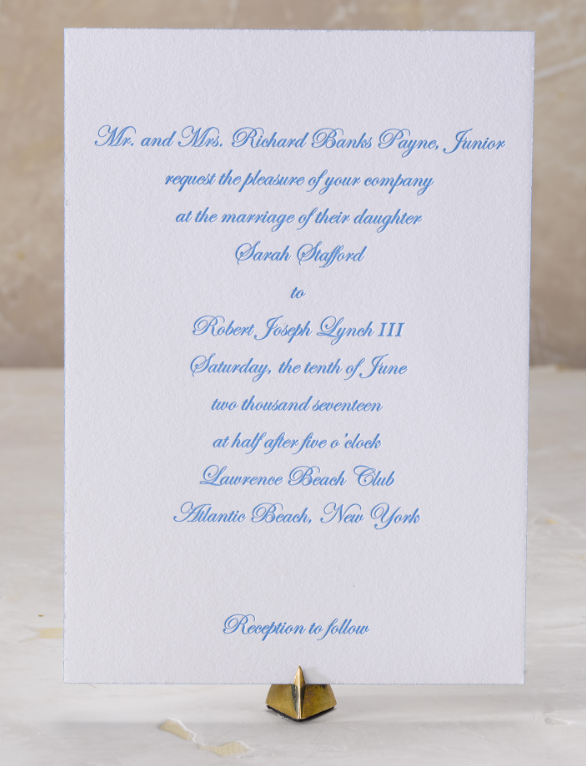 Mr. and Mrs. Richard Banks Payne, Junior
request the pleasure of your company
at the marriage of their daughter
Sarah Stafford
to
Robert Joseph Lynch III
Saturday, the tenth of June
two thousand seventeen
at half after five o'clock
Lawrence Beach Club
Atlantic Beach, New York
Reception to follow